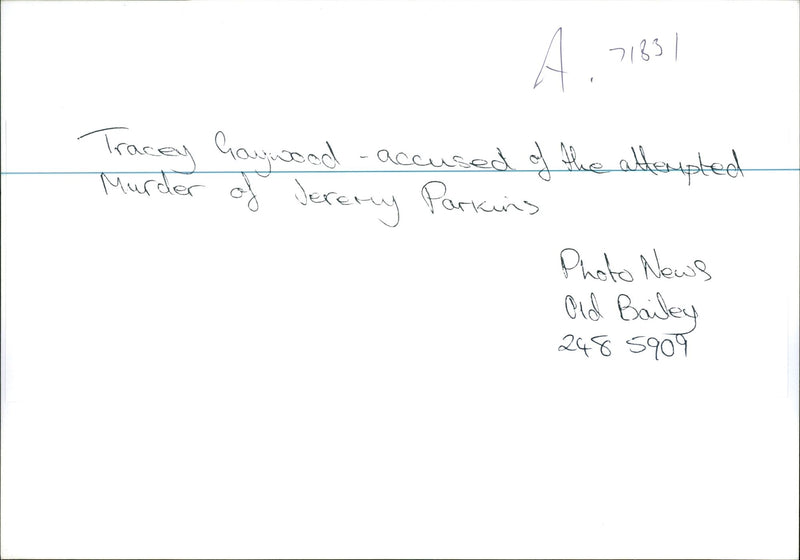 A. 71831
Tracey Gaywood - accused of the attempted
Murder of Jeremy Parkins
Photo News
Old Bailey
248 5909